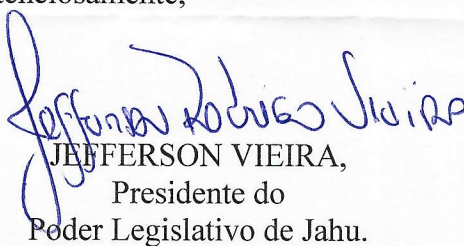 tenciosamente,
Jefferson Rodrigo Vieira
JEFFERSON VIEIRA,
Presidente do
Poder Legislativo de Jahu.